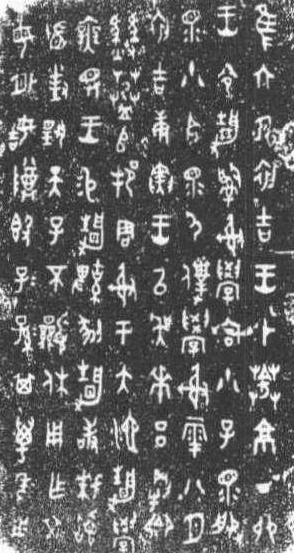 隹六月初吉王才𦸗京丁卯
王令靜𤔲射學宮小子眔服
眔小臣眔尸僕學射雩八月
初吉庚寅王以吳𠦪呂剛卿
𠂤邦周射于大池靜學
無王易靜鞞剢靜敢拜
首對揚天子不顯休用乍文
母外姞尊簋子子孫孫其萬年用